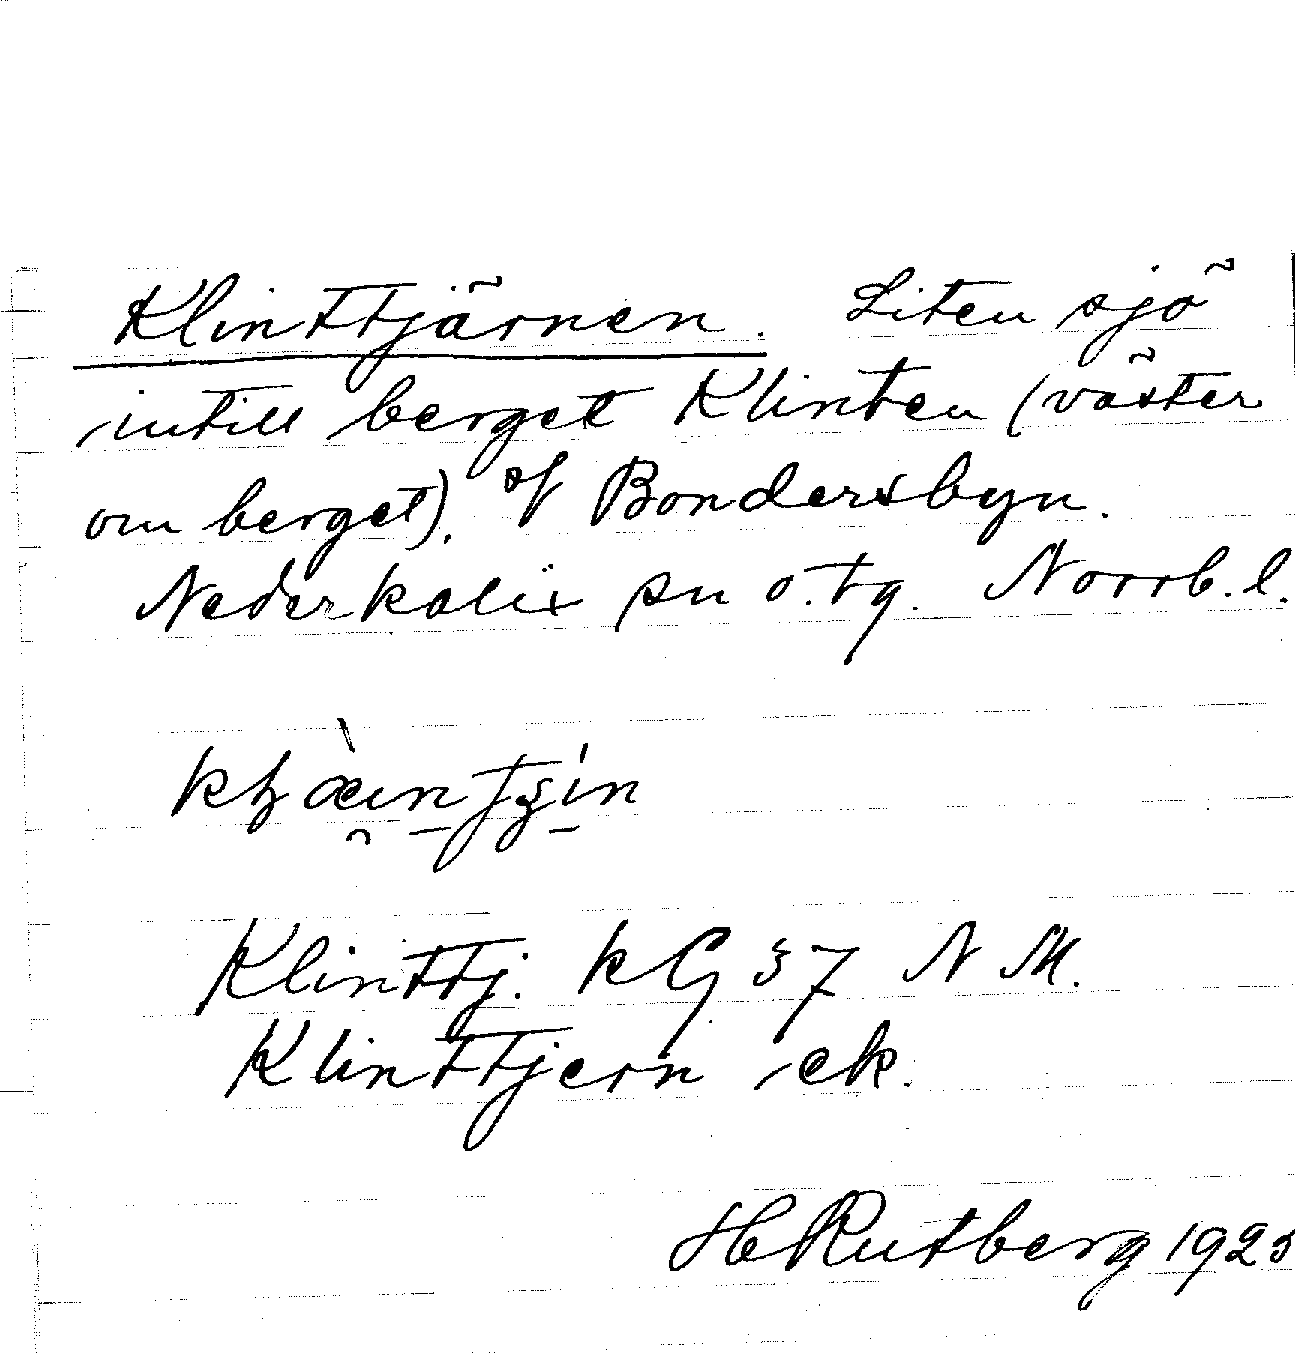 Klinttjärnen. Liten sjö
intill berget Klinten (väster
om berget). Bondersbyn.
Nederkalix sn o. tg. Norrb. l.
Klinttj. kG 37 N M.
Klinttjern ek.
H Rutberg 1923